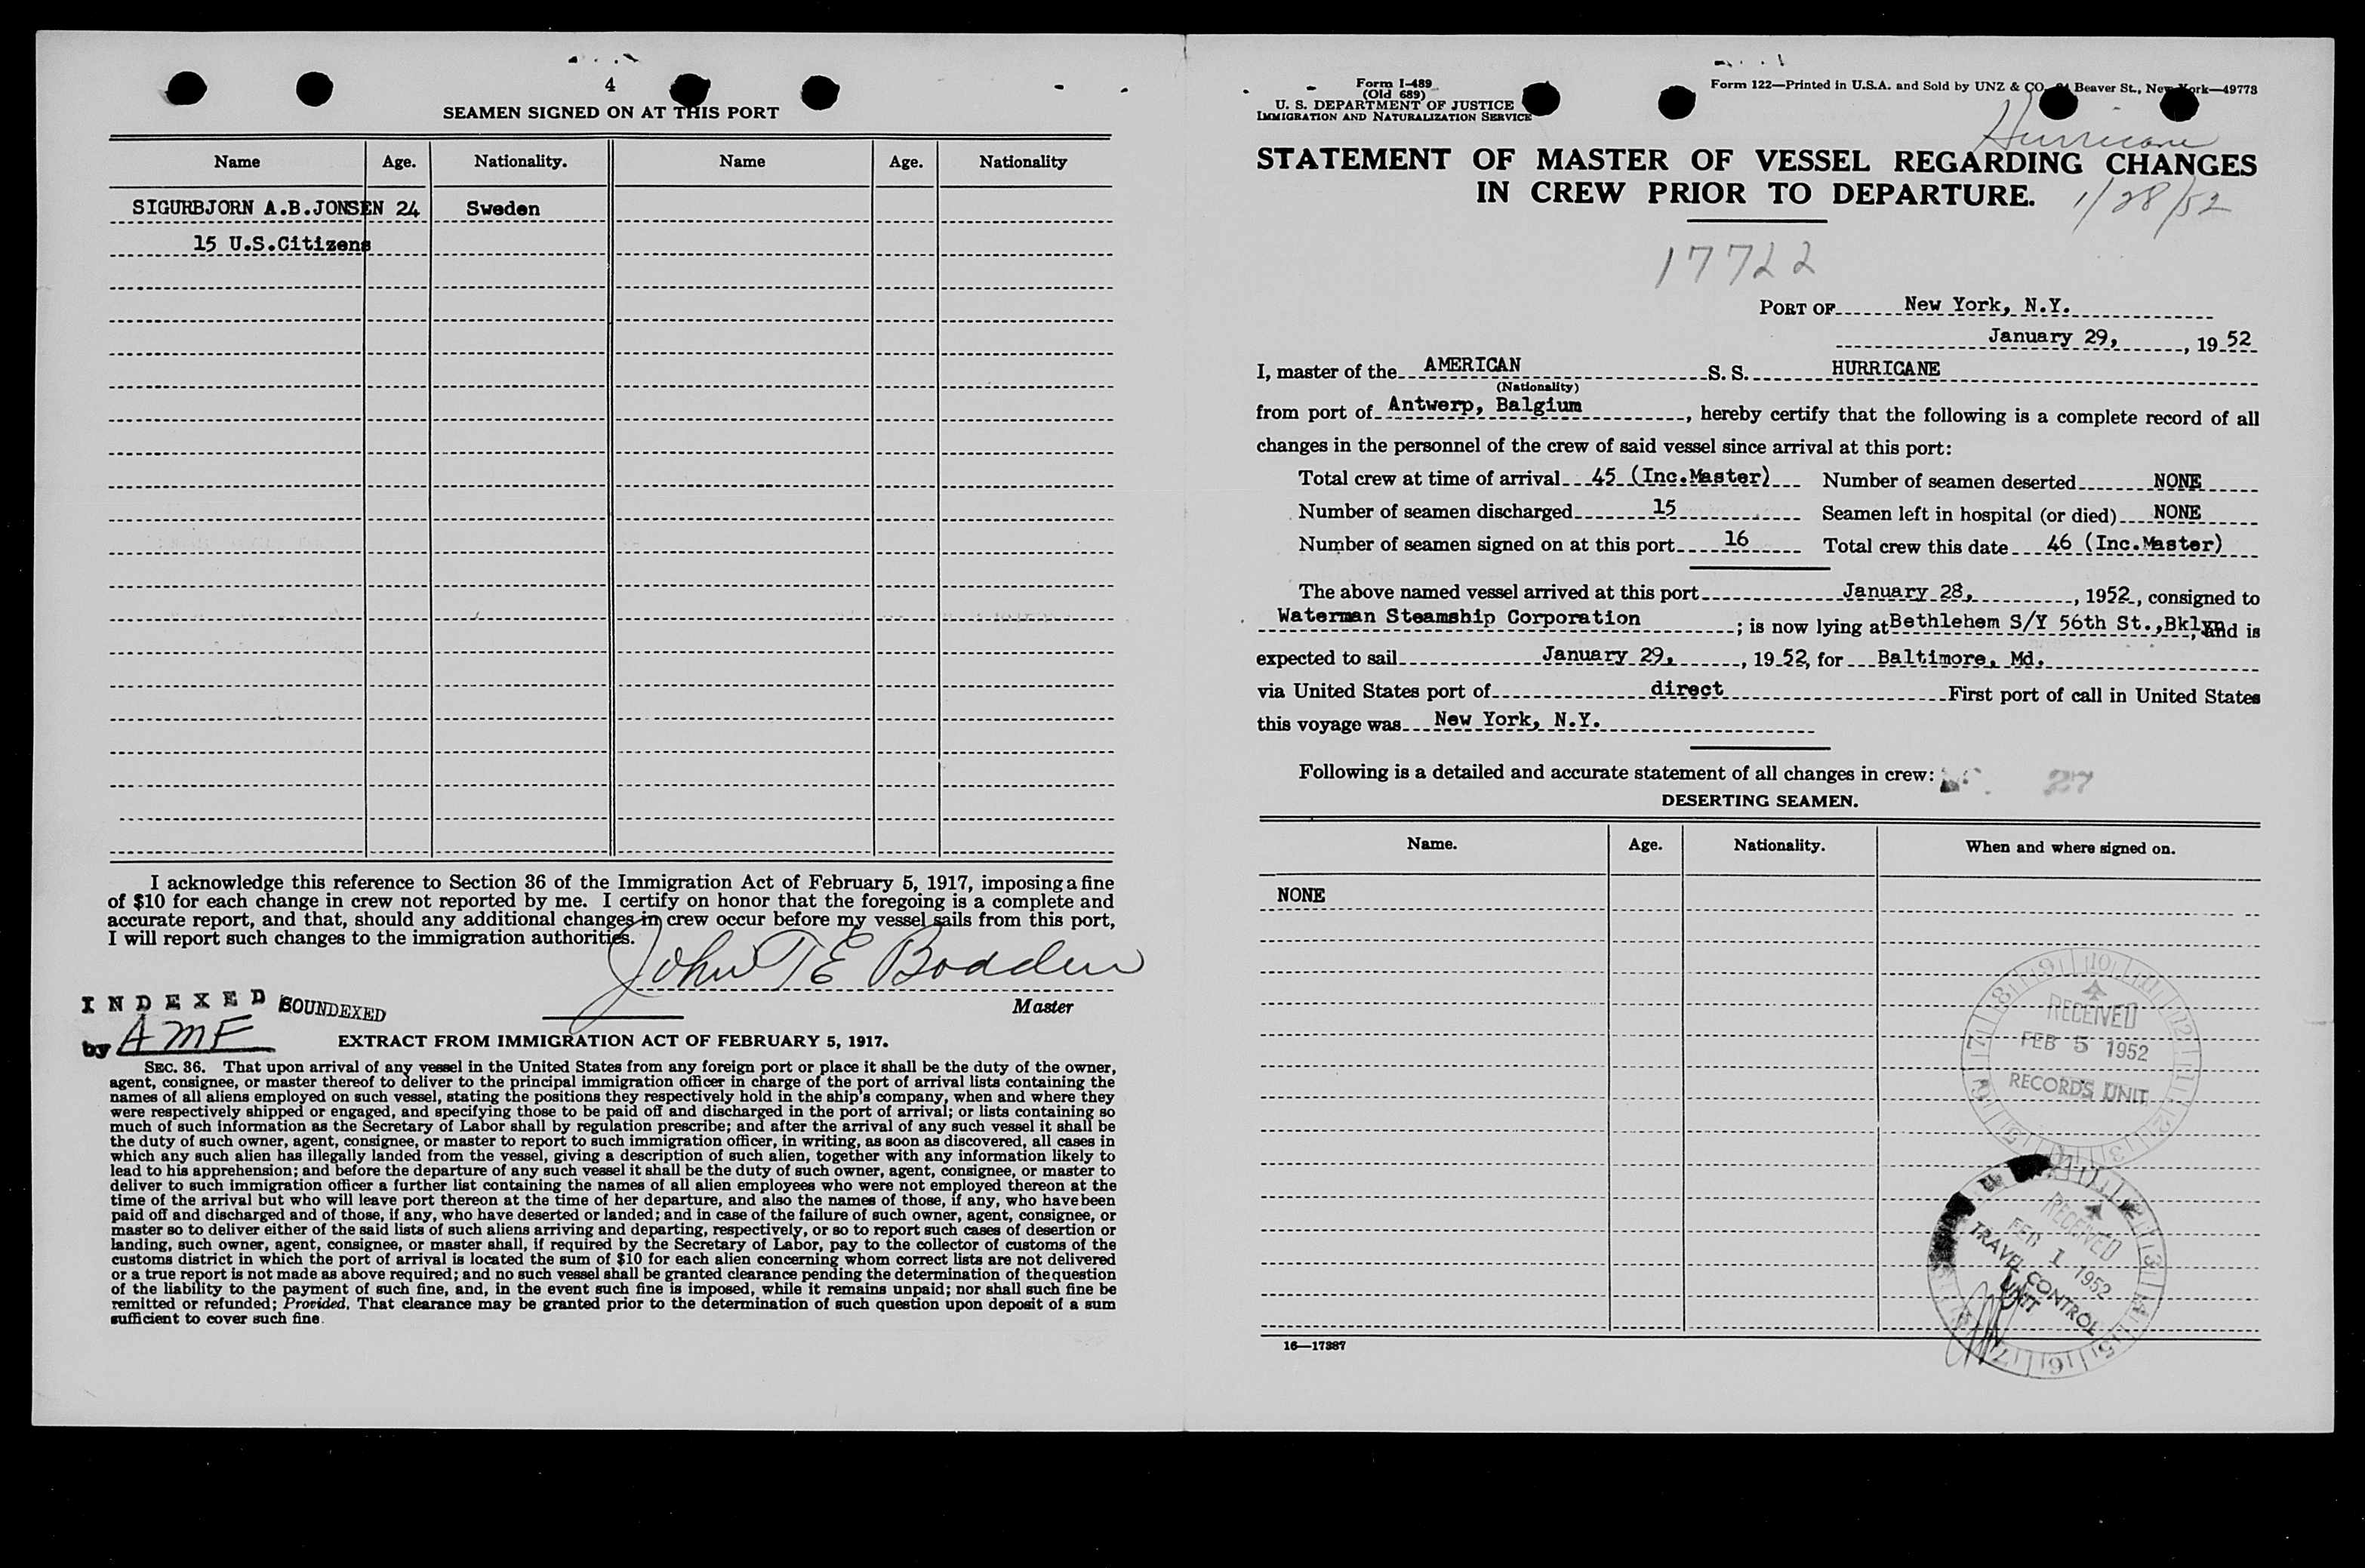 4
SEAMEN SIGNED ON AT THIS PORT
Name Age. Nationality. Name Age. Nationality
SIGURBJORN A.B.JONSEN 24 Sweden
15 U.S.Citizens
I acknowledge this reference to Section 36 of the Immigration Act of February 5, 1917, imposing a fine
of $10 for each change in crew not reported by me. I certify on honor that the foregoing is a complete and
accurate report, and that, should any additional changes in crew occur before my vessel sails from this port,
I will report such changes to the immigration authorities.
John T E Bodden
Master
INDEXED SOUNDEXED
by AMF
EXTRACT FROM IMMIGRATION ACT OF FEBRUARY 5, 1917.
SEC. 36. That upon arrival of any vessel in the United States from any foreign port or place it shall be the duty of the owner,
agent, consignee, or master thereof to deliver to the principal immigration officer in charge of the port of arrival lists containing the
names of all aliens employed on such vessel, stating the positions they respectively hold in the ship's company, when and where they
were respectively shipped or engaged, and specifying those to be paid off and discharged in the port of arrival; or lists containing so
much of such information as the Secretary of Labor shall by regulation prescribe; and after the arrival of any such vessel it shall be
the duty of such owner, agent, consignee, or master to report to such immigration officer, in writing, as soon as discovered, all cases in
which any such alien has illegally landed from the vessel, giving a description of such alien, together with any information likely to
lead to his apprehension; and before the departure of any such vessel it shall be the duty of such owner, agent, consignee, or master to
deliver to such immigration officer a further list containing the names of all alien employees who were not employed thereon at the
time of the arrival but who will leave port thereon at the time of her departure, and also the names of those, if any, who have been
paid off and discharged and of those, if any, who have deserted or landed; and in case of the failure of such owner, agent, consignee, or
master so to deliver either of the said lists of such aliens arriving and departing, respectively, or so to report such cases of desertion or
landing, such owner, agent, consignee, or master shall, if required by the Secretary of Labor, pay to the collector of customs of the
customs district in which the port of arrival is located the sum of $10 for each alien concerning whom correct lists are not delivered
or a true report is not made as above required; and no such vessel shall be granted clearance pending the determination of the question
of the liability to the payment of such fine, and, in the event such fine is imposed, while it remains unpaid; nor shall such fine be
remitted or refunded; Provided, That clearance may be granted prior to the determination of such question upon deposit of a sum
sufficient to cover such fine.
Form I-489
(Old 689)
U. S. DEPARTMENT OF JUSTICE
IMMIGRATION AND NATURALIZATION SERVICE
Form 122—Printed in U.S.A. and Sold by UNZ & CO. Beaver St., New York—49773
Hurricane
STATEMENT OF MASTER OF VESSEL REGARDING CHANGES
IN CREW PRIOR TO DEPARTURE.
1/28/52
17722
PORT OF New York, N.Y.
January 29, , 19 52
I, master of the AMERICAN S. S. HURRICANE
(Nationality)
from port of Antwerp, Balgium , hereby certify that the following is a complete record of all
changes in the personnel of the crew of said vessel since arrival at this port:
Total crew at time of arrival 45 (Inc.Master) Number of seamen deserted NONE
Number of seamen discharged 15 Seamen left in hospital (or died) NONE
Number of seamen signed on at this port 16 Total crew this date 46 (Inc.Master)
The above named vessel arrived at this port January 28, , 1952, consigned to
Waterman Steamship Corporation ; is now lying at Bethlehem S/Y 56th St.,Bklyn, and is
expected to sail January 29, , 19 52, for Baltimore, Md.
via United States port of direct First port of call in United States
this voyage was New York, N.Y.
Following is a detailed and accurate statement of all changes in crew:
27
DESERTING SEAMEN.
Name. Age. Nationality. When and where signed on.
NONE
RECEIVED
FEB 5 1952
RECORDS UNIT
RECEIVED
FEB 1 1952
TRAVEL CONTROL
UNIT
16—17387